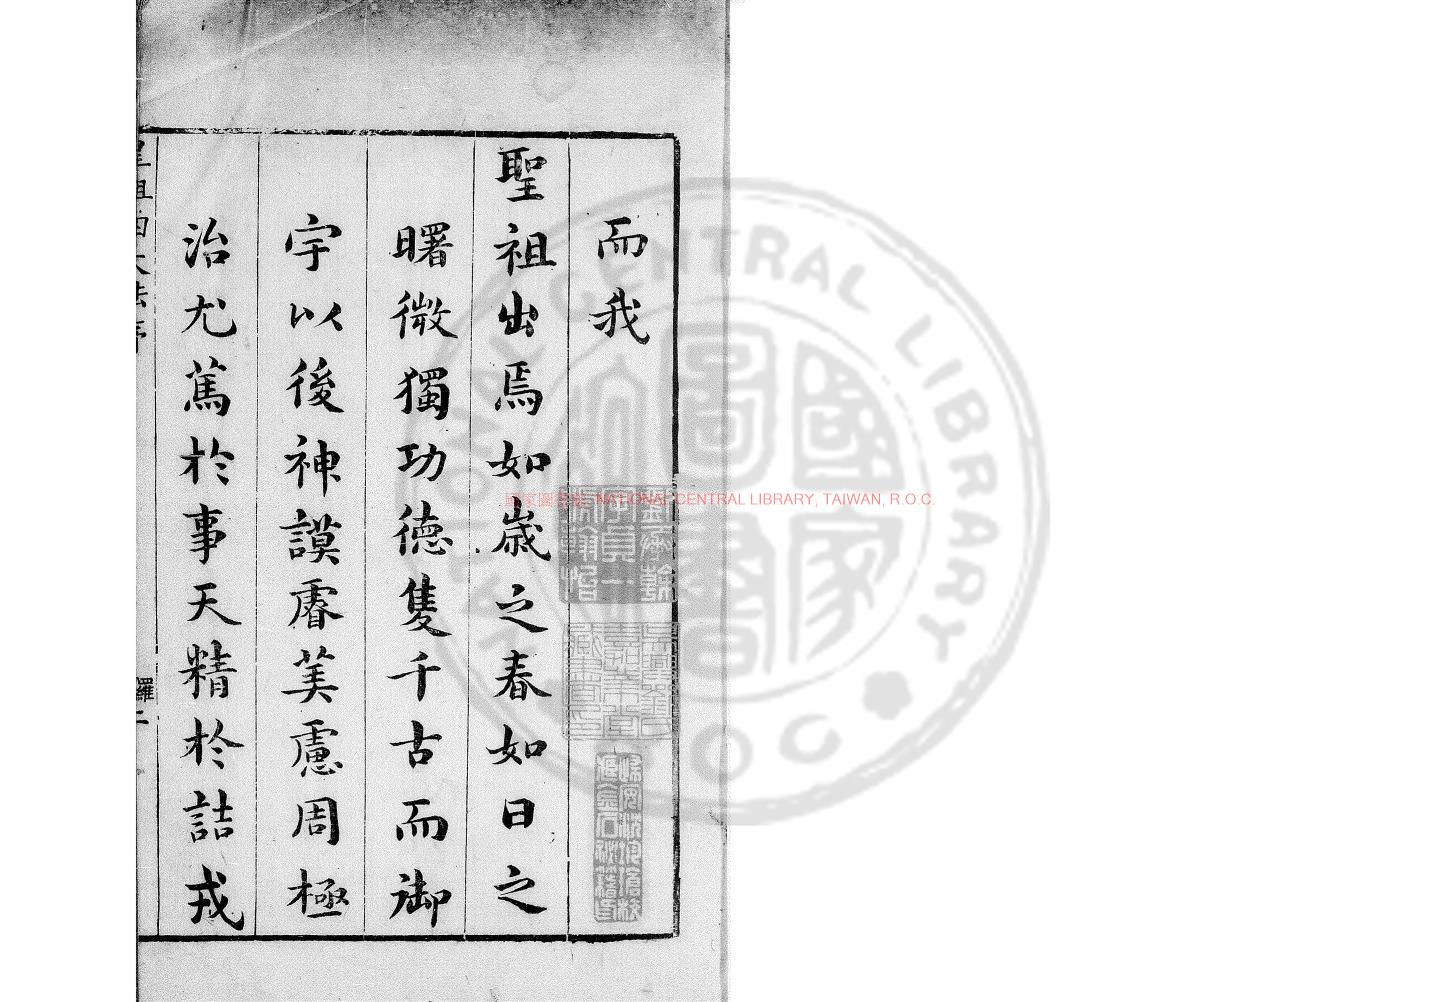 而我
聖祖出焉如歲之春如日之
曙微獨功德隻千古而御
宇以後神謨睿美慮周極
治尤篤於事天精於詰戎
國家圖書館 NATIONAL CENTRAL LIBRARY, TAIWAN, R.O.C.
NATIONAL CENTRAL LIBRARY
R.O.C.
國家圖書館